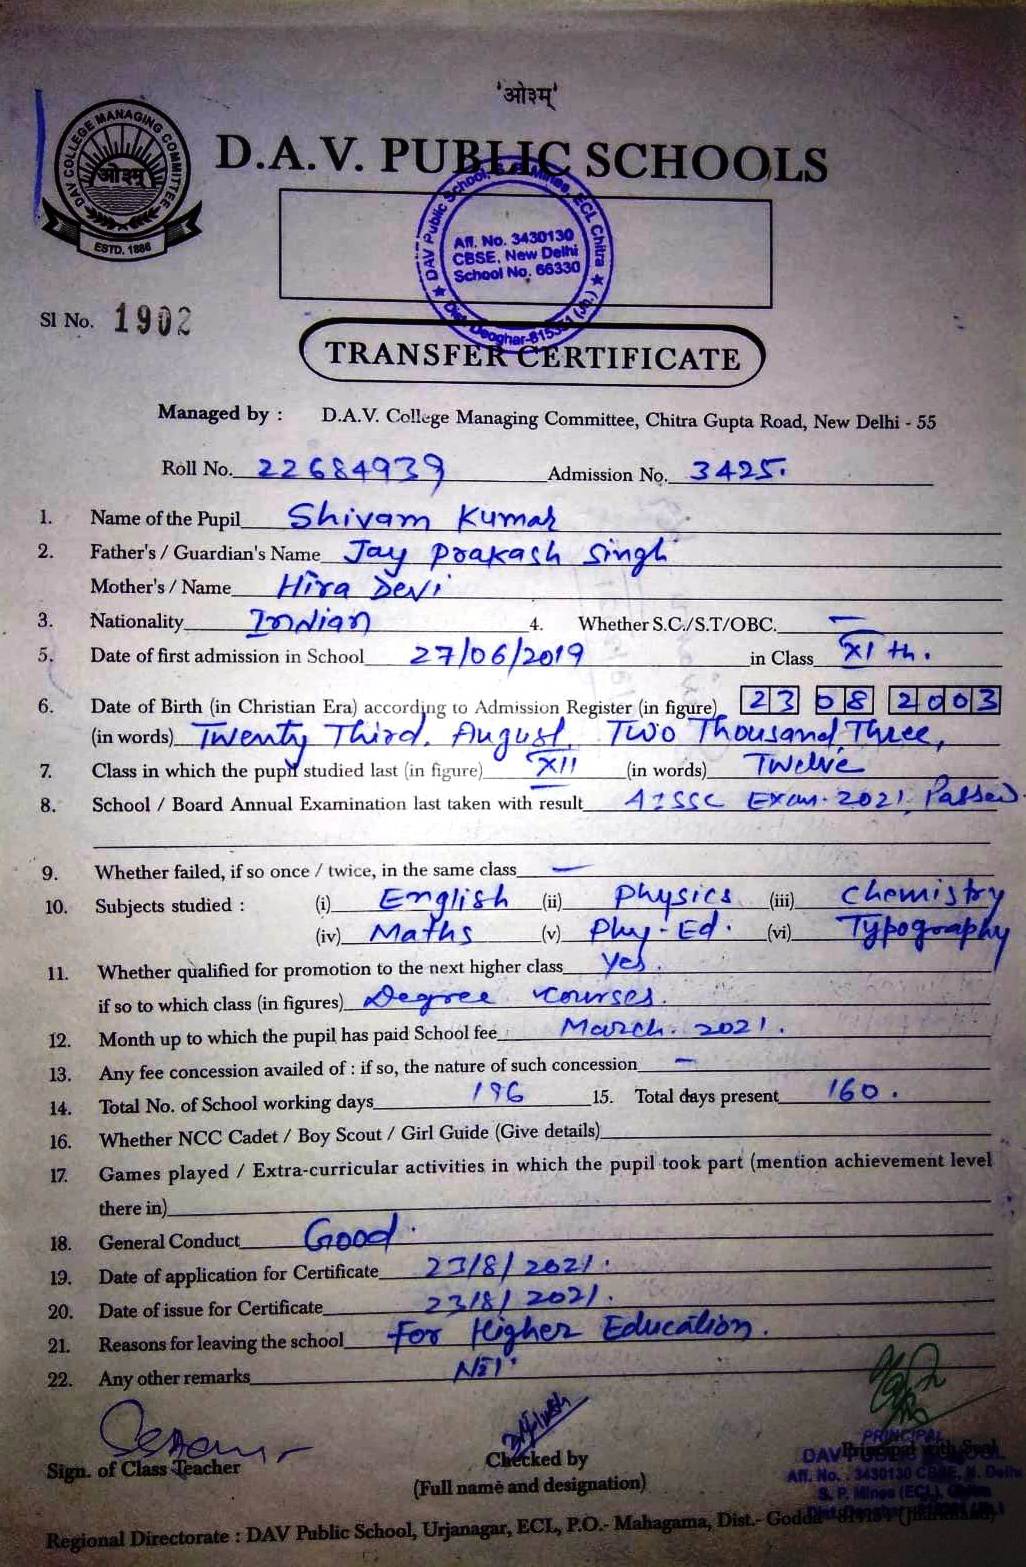 'ओ३म्'
DAV COLLEGE MANAGING COMMITTEE
ओ३म्
ESTD. 1886
D.A.V. PUBLIC SCHOOLS
DAV Public School, S.P. Mines, ECL Chitra
Aff. No. 3430130
CBSE, New Delhi
School No. 66330
Dist. Deoghar-815351 (Jh.)
Sl No. 1902
TRANSFER CERTIFICATE
Managed by : D.A.V. College Managing Committee, Chitra Gupta Road, New Delhi - 55
Roll No. 22684939 Admission No. 3425.
1. Name of the Pupil Shivam Kumar
2. Father's / Guardian's Name Jay Prakash Singh
Mother's / Name Hira Devi
3. Nationality Indian 4. Whether S.C./S.T/OBC. —
5. Date of first admission in School 27/06/2019 in Class XI th.
6. Date of Birth (in Christian Era) according to Admission Register (in figure) 23 08 2003
(in words) Twenty Third, August, Two Thousand, Three,
7. Class in which the pupil studied last (in figure) XII (in words) Twelve
8. School / Board Annual Examination last taken with result AISSC Exam. 2021, Passed.
9. Whether failed, if so once / twice, in the same class —
10. Subjects studied : (i) English (ii) Physics (iii) Chemistry
(iv) Maths (v) Phy-Ed. (vi) Typography
11. Whether qualified for promotion to the next higher class Yes.
if so to which class (in figures) Degree courses.
12. Month up to which the pupil has paid School fee March. 2021.
13. Any fee concession availed of : if so, the nature of such concession —
14. Total No. of School working days 196 15. Total days present 160.
16. Whether NCC Cadet / Boy Scout / Girl Guide (Give details)
17. Games played / Extra-curricular activities in which the pupil took part (mention achievement level
there in)
18. General Conduct Good.
19. Date of application for Certificate 23/8/2021.
20. Date of issue for Certificate 23/8/2021.
21. Reasons for leaving the school For Higher Education.
22. Any other remarks Nil.
Sign. of Class Teacher
Checked by
(Full name and designation)
Principal with Seal
PRINCIPAL
DAV PUBLIC SCHOOL
Aff. No. 3430130 CBSE, N. Delhi
S. P. Mines (ECL), Chitra
Regional Directorate : DAV Public School, Urjanagar, ECL, P.O.- Mahagama, Dist.- Godda